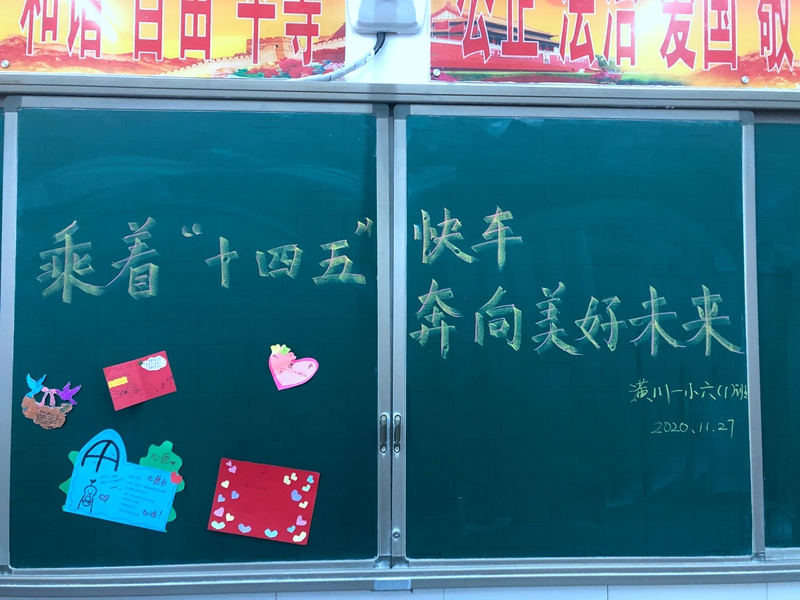 和谐 自由 平等
公正 法治 爱国 敬
乘着“十四五”快车
奔向美好未来
潢川一小六(1)班
2020.11.27
心愿
加油!